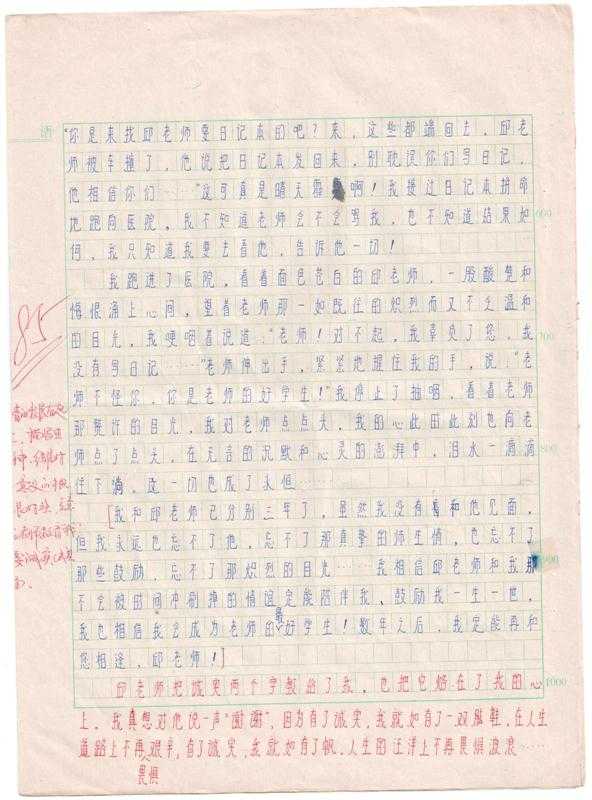 酒
"你是来找邱老师要日记本的吧?来,这些都端回去,邱老
师被车撞了,他说把日记本发回来,别耽误你们写日记,
他相信你们……"这可真是晴天霹 啊!我接过日记本拼命
地跑向医院,我不知道老师会不会骂我,也不知道结果如
600
何,我只知道我要去看他,告诉他一切!
我跑进了医院,看着面色苍白的邱老师,一股酸楚和
悔恨涌上心间,望着老师那一如既往的炽烈而又不乏温和
的目光,我哽咽着说道:"老师!对不起,我辜负了您,我
700
没有写日记……"老师伸出手,紧紧地握住我的手,说:"老
师不怪你,你是老师的好学生!"我停止了抽咽,看着老师
那赞许的目光,我对老师点点头,我的心此时此刻也向老
师点了点头,在无言的沉默和心灵的澎湃中,泪水一滴滴
800
往下淌,这一切也成了永恒……
[我和邱老师已分别三年了,虽然我没有 和他见面,
但我永远也忘不了他,忘不了那真挚的师生情,也忘不了
那些鼓励,忘不了那炽烈的目光……我相信邱老师和我那
900
不会被时间冲刷掉的情谊定能陪伴我、鼓励我一生一世,
我也相信我会成为老师的最好学生!数年之后,我定能再和
您相逢,邱老师!]
邱老师把诚实两个字教给了我,也把它烙在了我的心
1000
上。我真想对他说一声"谢谢",因为有了诚实,我就如有了一双 鞋,在人生
道路上不再畏惧艰辛,有了诚实,我就如有了帆,人生的汪洋上不再畏惧波浪……
85